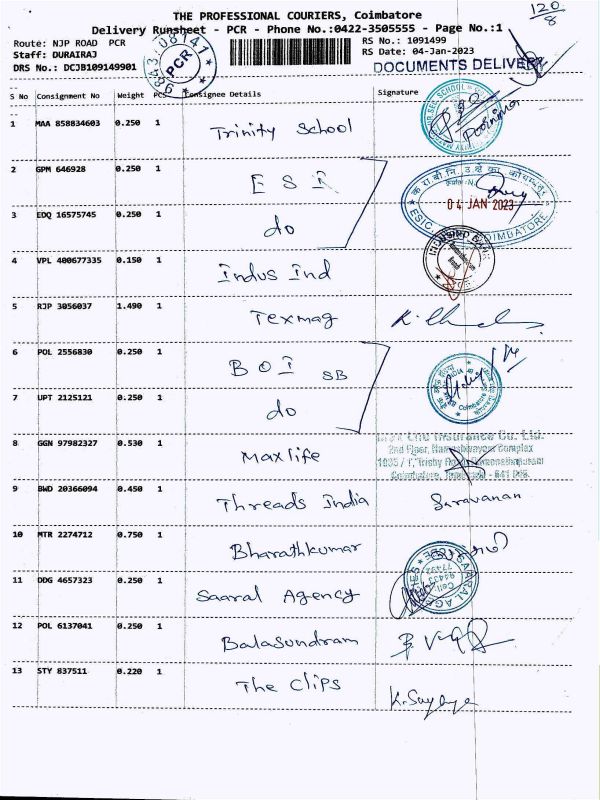 120/8
THE PROFESSIONAL COURIERS, Coimbatore
Delivery Runsheet - PCR - Phone No.:0422-3505555 - Page No.:1
Route: NJP ROAD PCR
RS No.: 1091499
Staff: DURAIRAJ
RS Date: 04-Jan-2023
DRS No.: DCJB109149901
PCR
DOCUMENTS DELIVERY
S No Consignment No Weight PCS Consignee Details Signature
1 MAA 858834603 0.250 1 Trinity School
Poornima
2 GPM 646928 0.250 1 E S I
04 JAN 2023
ESIC COIMBATORE
3 EDQ 16575745 0.250 1 do
4 VPL 400677335 0.150 1 Indus Ind
5 RJP 3056037 1.490 1 Texmag
6 POL 2556830 0.250 1 B O I SB
7 UPT 2125121 0.250 1 do
8 GGN 97982327 0.530 1 Maxlife
Insurance Co. Ltd.
2nd Floor, Complex
9 BWD 20366094 0.450 1 Threads India Saravanan
10 MTR 2274712 0.750 1 Bharathkumar
11 DDG 4657323 0.250 1 Saaral Agency
12 POL 6137041 0.250 1 Balasundram
13 STY 837511 0.220 1 The Clips